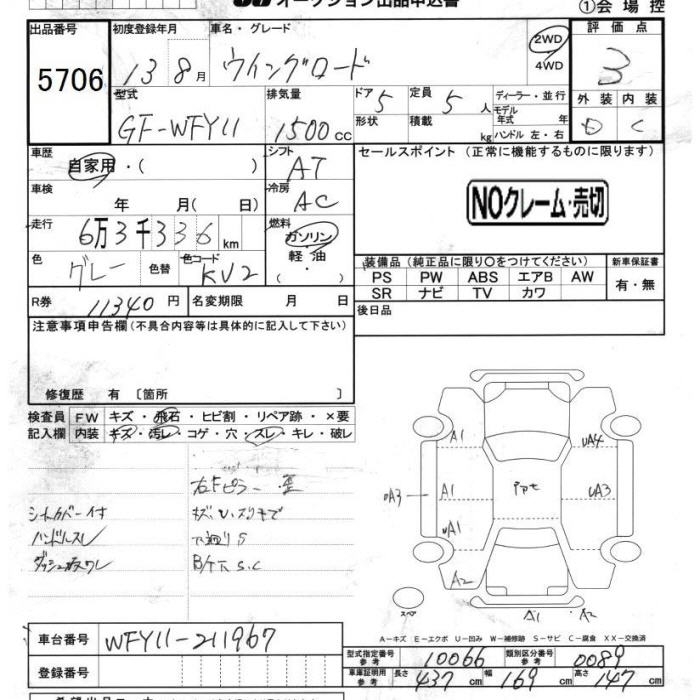 オークション出品申込書
①会場控
出品番号 5706
初度登録年月 13 8月
車名・グレード ウイングロード
2WD
4WD
評価点 3
型式 GF-WFY11
排気量 1500cc
ドア 5
形状
定員 5人
積載 kg
ディーラー・並行
モデル年式 年
ハンドル 左・右
外装 内装
D C
車歴 自家用・( )
シフト AT
セールスポイント (正常に機能するものに限ります)
NOクレーム・売切
車検 年 月( 日)
冷房 AC
走行 6万3千336km
燃料 ガソリン・軽油( )
色 グレー 色替 色コード KV2
装備品 (純正品に限り○をつけてください) 新車保証書
PS PW ABS エアB AW
有・無
SR ナビ TV カワ
R券 11340円 名変期限 月 日
後日品
注意事項申告欄 (不具合内容等は具体的に記入して下さい)
修復歴 有 〔箇所 〕
検査員 FW キズ・飛石・ヒビ割・リペア跡・×要
記入欄 内装 キズ・汚レ・コゲ・穴・スレ・キレ・破レ
右Fピラー
シートカバー付
ハンドルスレ
下廻りS
B/下 S.C
A1
UA4
UA3
A1
UA3
UA1
A2
A1
A2
A-キズ E-エクボ U-凹み W-補修跡 S-サビ C-腐食 XX-交換済
車台番号 WFY11-211967
型式指定番号 参考 10066
類別区分番号 参考 0089
登録番号
車庫証明用 参考 長さ 437cm 幅 169cm 高さ 147cm